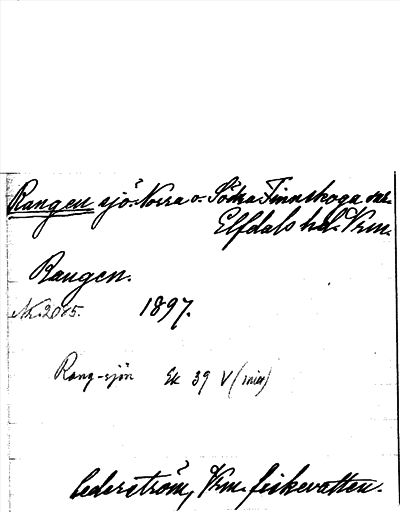 Rangen sjö. Norra o. Södra Finnskoga snr.
Elfdals hd. Vrm.
Rangen.
Nr. 2085. 1897.
Rang-sjön Ek 39 V
Cederström, Vrm. fiskevatten.